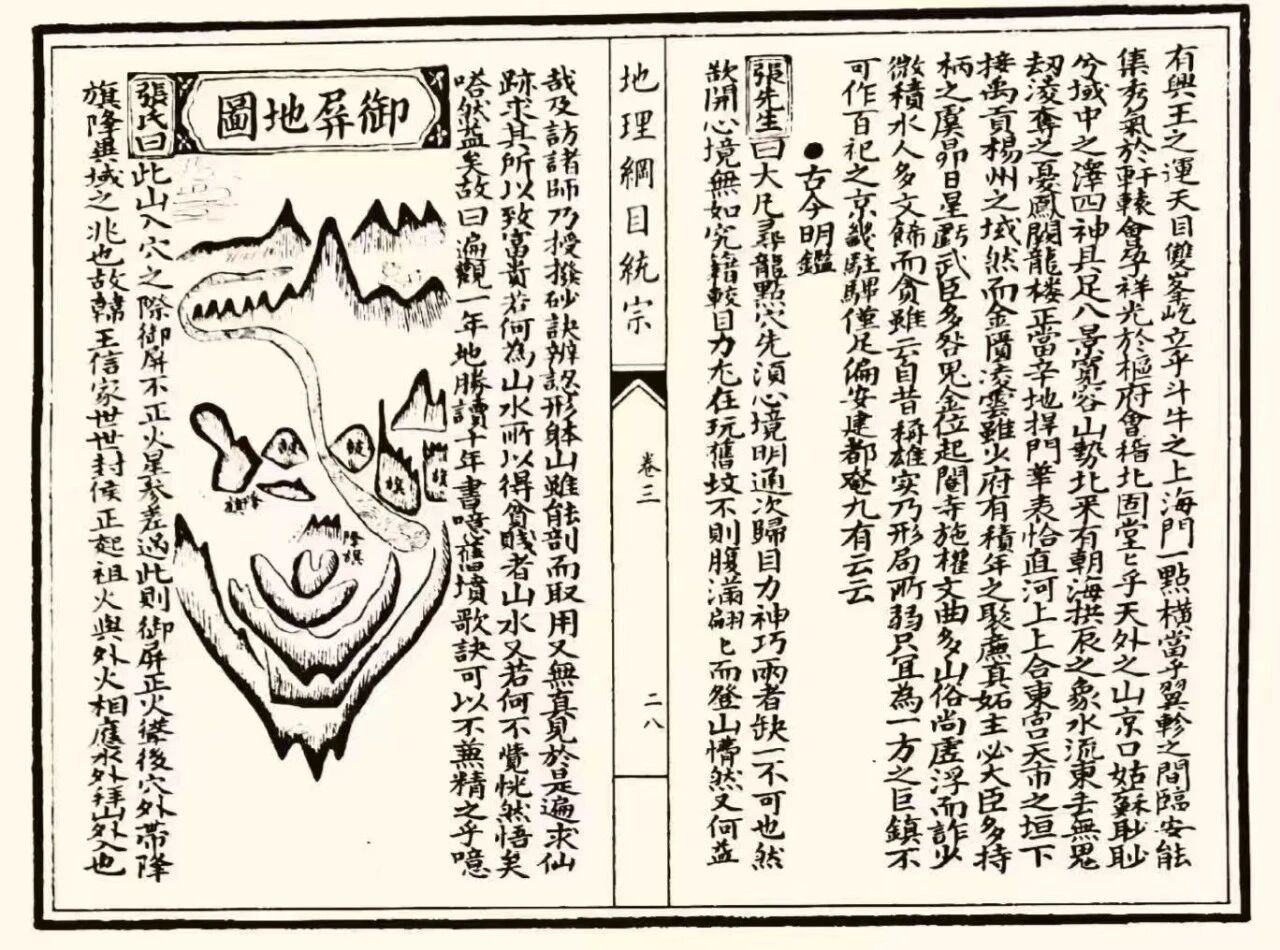 有興王之運天目雙峯屹立乎斗牛之上海門一點橫當乎翼軫之間臨安能
集秀氣於軒轅會孕祥光於樞府會稽北固堂〻乎天外之山京口姑蘇耿耿
兮域中之澤四神具足八景寬容山勢北來有朝海拱辰之象水流東去無鬼
刼淩奪之憂鳳闕龍楼正當辛地捍門華表恰直河上上合東宫天市之垣下
接禹貢楊州之域然而金匱凌雲雖少府有積年之聚亷真妬主必大臣多持
柄之虞昴日星虧武臣多咎鬼金位起閽寺施權文曲多山俗尚虛浮而詐少
微積水人多文飾而貪雖云自昔稱雄实乃形局所弱只宜為一方之巨鎮不
可作百祀之京畿駐驆僅足偏安建都發九有云云
●古今明鑑
張先生曰大凡尋龍點穴先須心境明通次歸目力神巧兩者缺一不可也然
欲開心境無如究籍較目力尤在玩舊坟不則腹滿翩〻而登山懵然又何益
地理綱目統宗
卷三
二八
哉及訪諸師乃授撥砂訣辨認形躰山雖能剖而取用又無真見於是遍求仙
跡求其所以致富貴若何為山水所以得貧賤者山水又若何不覺恍然悟矣
嗒然益矣故曰遍觀一年地勝讀十年書噫舊墳歌訣可以不兼精之乎噫
御屏地圖
鼓
鼓
旗
旗
降旗
降旗
張氏曰此山入穴之際御屏不正火星参差过此則御屏正火聳後穴外帶降
旗降異域之兆也故韓王信家世世封侯正起祖火與外火相應水外拜山外入也